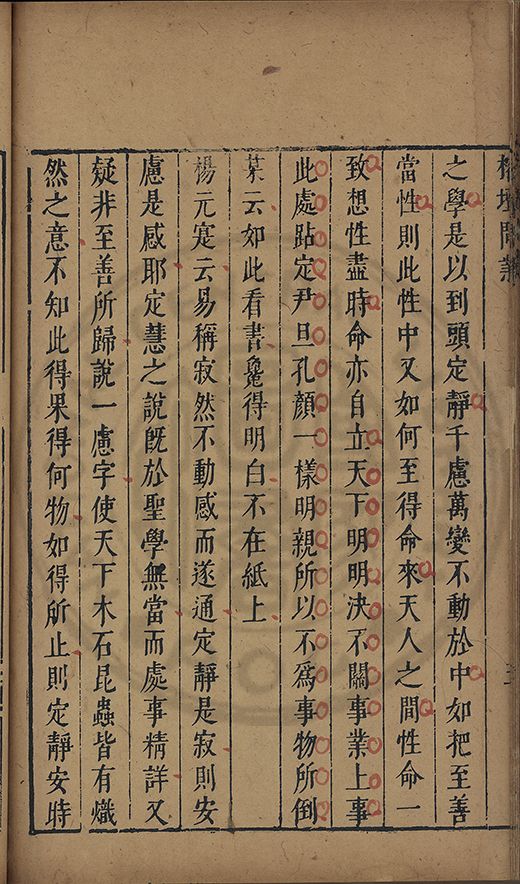 榕壇問業
之學是以到頭定靜千慮萬變不動於中如把至善
當性則此性中又如何至得命來天人之間性命一
致想性盡時命亦自立天下明明決不關事業上事
此處跕定尹旦孔顏一樣明親所以不為事物所倒
某云如此看書麄得明白不在紙上
楊元寔云易稱寂然不動感而遂通定靜是寂則安
慮是感耶定慧之說旣於聖學無當而處事精詳又
疑非至善所歸說一慮字使天下木石昆蟲皆有熾
然之意不知此得果得何物如得所止則定靜安時